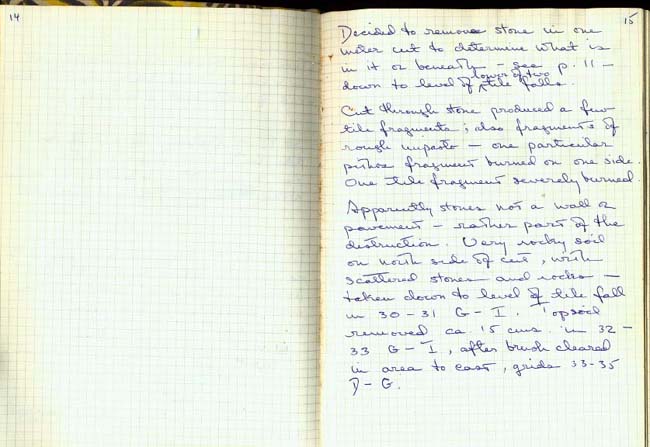 14
15
Decided to remove stone in one
meter cut to determine what is
in it or beneath – see p. 11 –
down to level of lower of two tile falls.
Cut through stone produced a few
tile fragments; also fragments of
rough impasto – one particular
pithos fragment burned on one side.
One tile fragment severely burned.
Apparently stones not a wall or
pavement – rather part of the
destruction. Very rocky soil
on north side of cut, with
scattered stones and rocks –
taken down to level of tile fall
in 30-31 G-I. Topsoil
removed ca 15 cms. in 32-
33 G-I, after brush cleared
in area to east, grids 33-35
D-G.